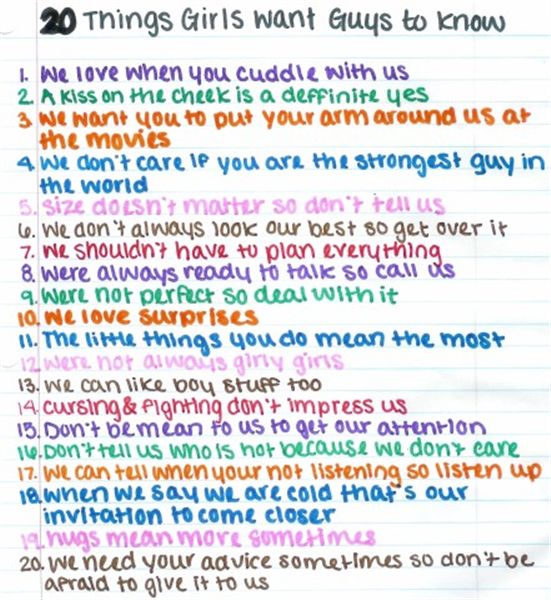 20 Things Girls want Guys to know
1. We love when you cuddle with us
2. A kiss on the cheek is a deffinite yes
3. We want you to put your arm around us at
the movies
4. We don't care if you are the strongest guy in
the world
5. Size doesn't matter so don't tell us
6. We don't always look our best so get over it
7. We shouldn't have to plan everything
8. Were always ready to talk so call us
9. Were not perfect so deal with it
10. We love surprises
11. The little things you do mean the most
12. Were not always girly girls
13. We can like boy stuff too
14. Cursing & fighting don't impress us
15. Don't be mean to us to get our attention
16. Don't tell us who is hot because we don't care
17. We can tell when your not listening so listen up
18. When we say we are cold that's our
invitation to come closer
19. hugs mean more sometimes
20. We need your advice sometimes so don't be
afraid to give it to us